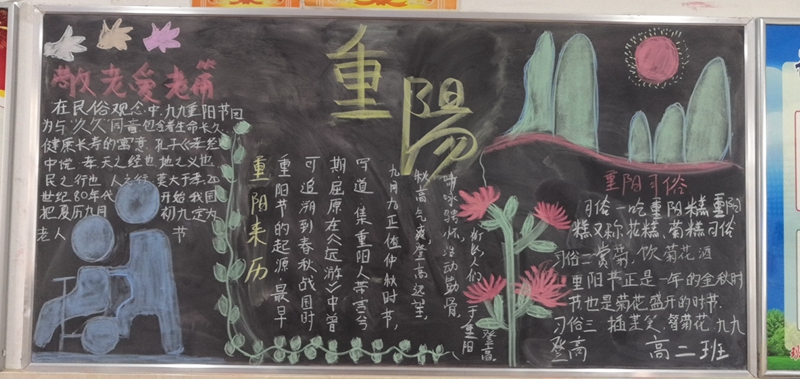 敬老爱老篇
在民俗观念中,九九重阳节因
为与"久久"同音包含着生命长久、
健康长寿的寓意,孔子《孝经》
中说,孝天之经也,地之义也
民之行也 人之行 莫大于孝,20
世纪80年代 开始我国
把夏历九月 初九定为
老人 节
重阳
重阳来历
重阳节的起源,最早
可追溯到春秋战国时
期屈原在《远游》中曾
写道:集重阳入帝宫兮
九月九正值仲秋时节,
秋高气爽登高远望,
啸咏骋怀,活动筋骨,
于重阳
登高
重阳习俗
习俗一吃重阳糕重阳
糕又称花糕、菊糕
习俗二赏菊、饮菊花酒
重阳节正是一年的金秋时
节也是菊花盛开的时节.
习俗三 插茱萸、簪菊花 九九
登高 高二班